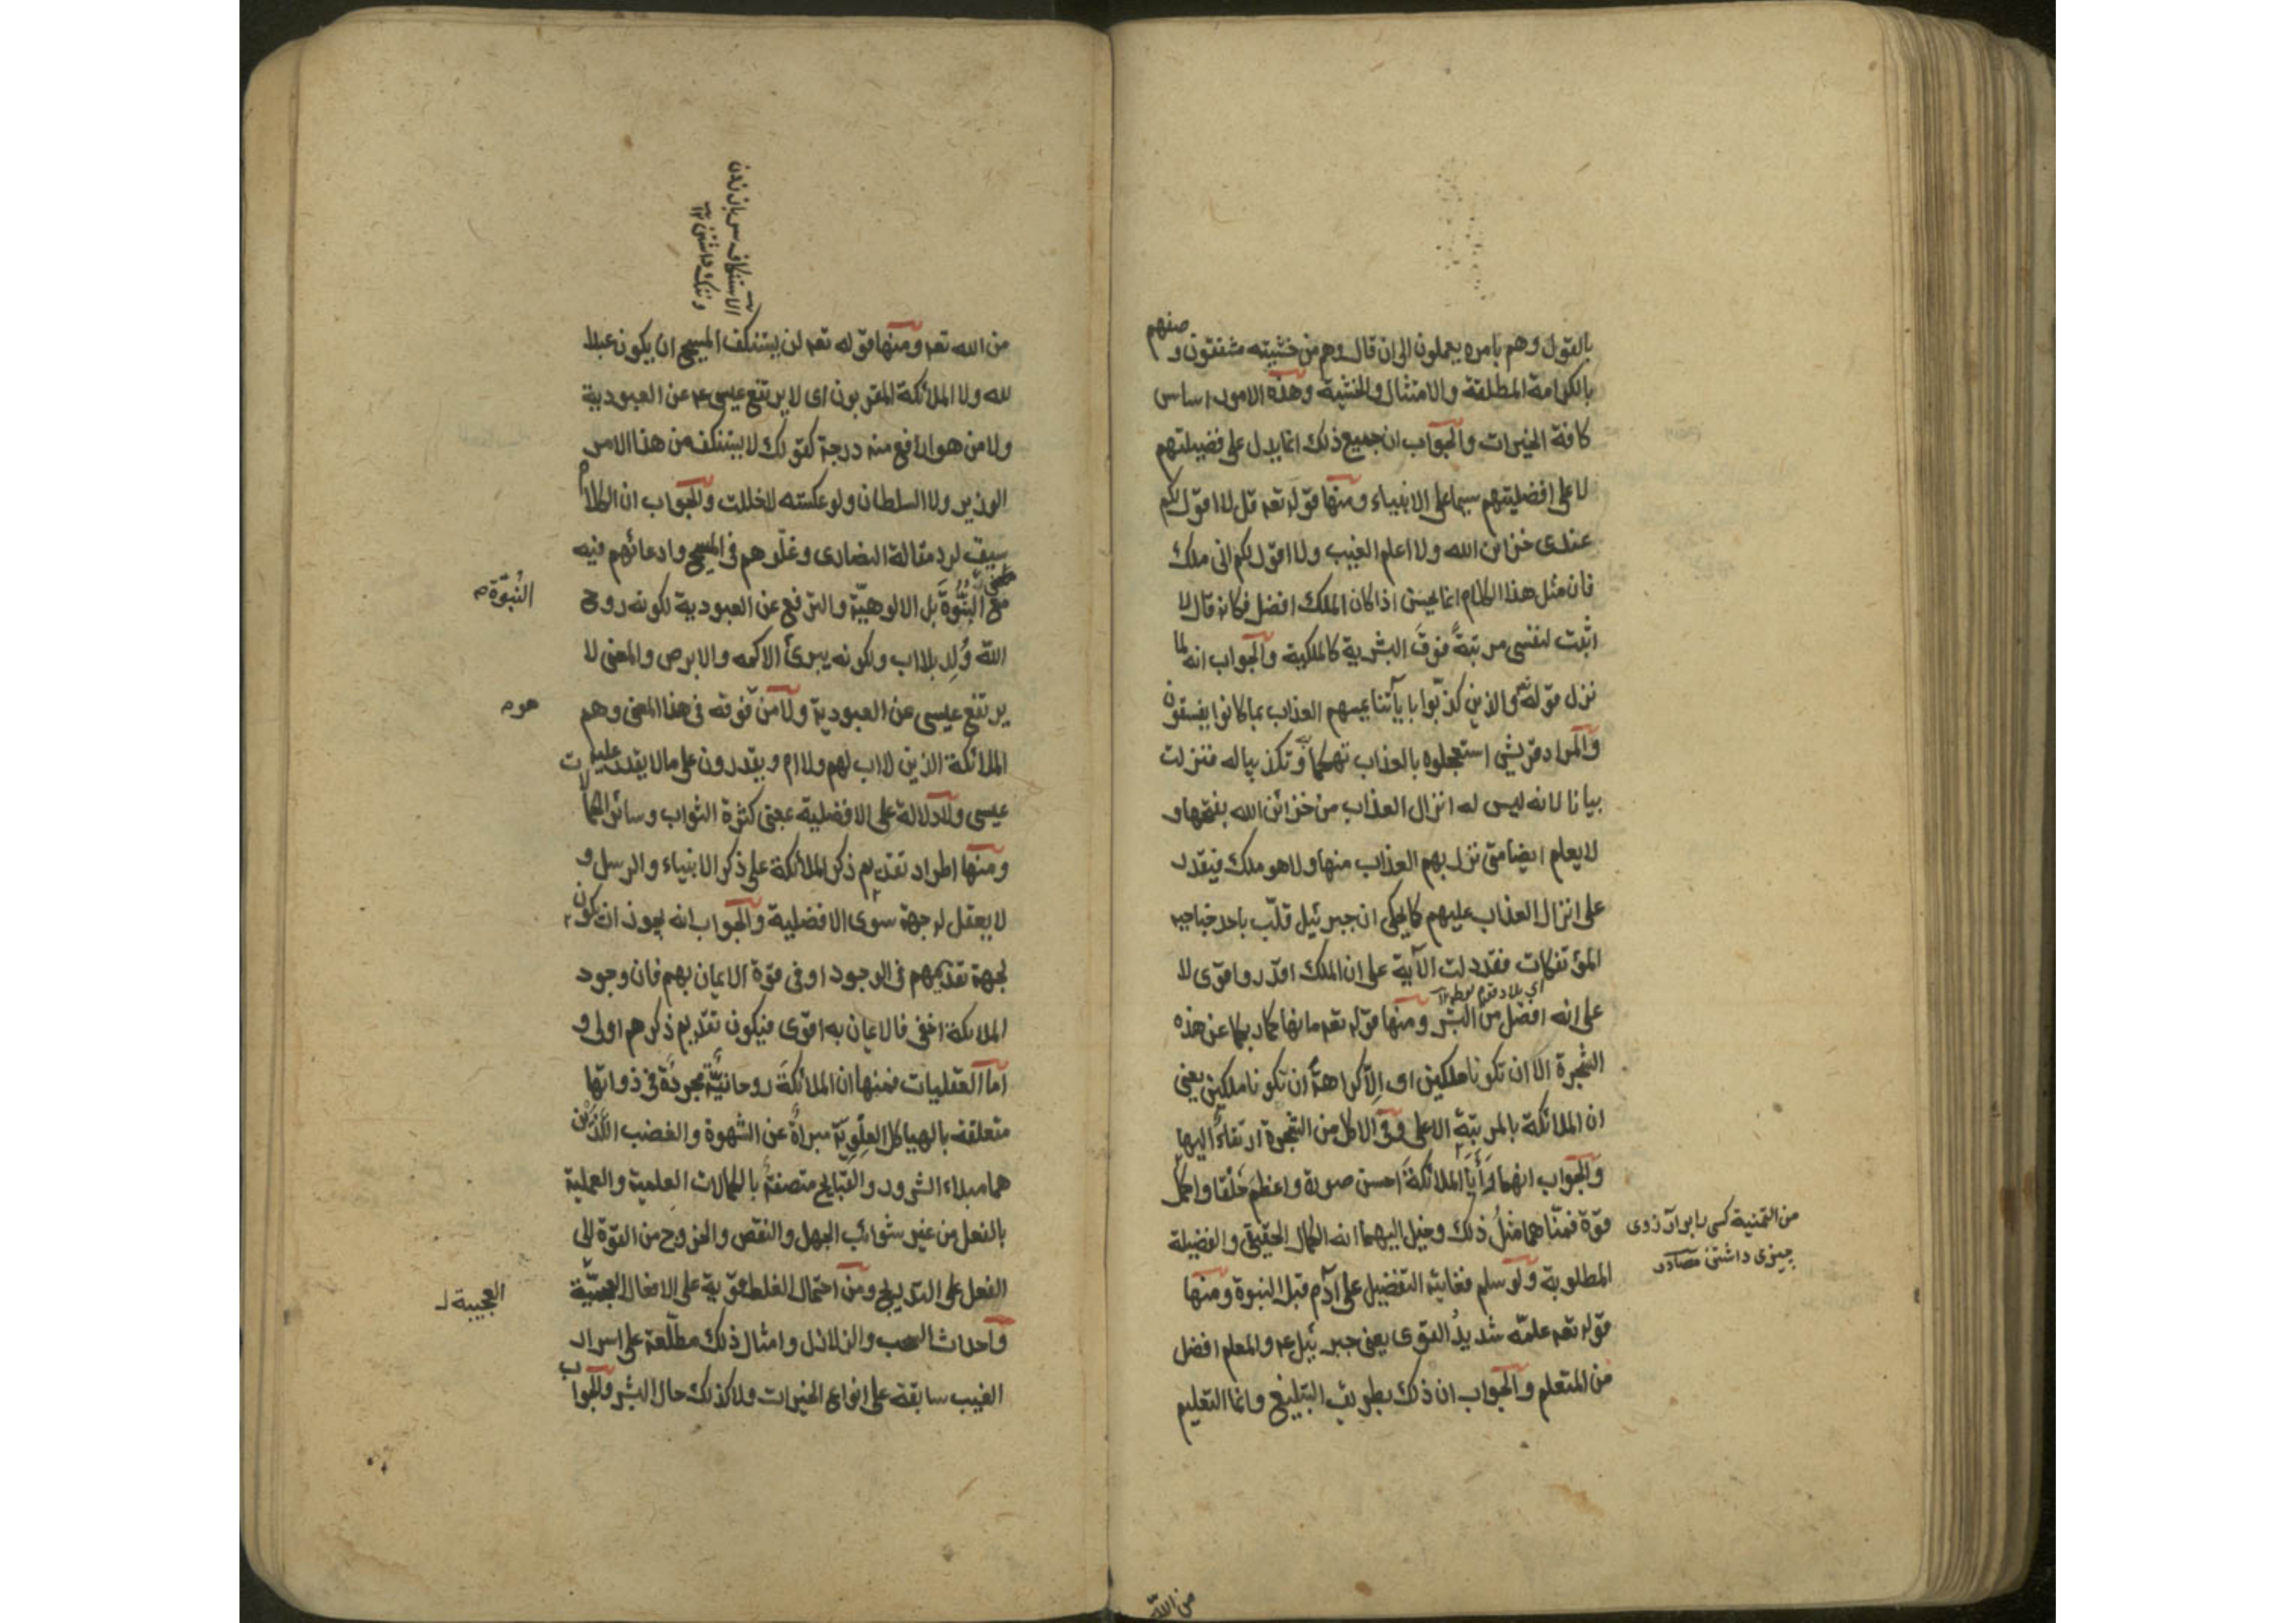 بالقول وهم بامره يعملون الى ان قال وهم من خشيته مشفقون و صفهم
بالكرامة المطلقة والامتثال والخشية وهذه الامور اساس
كافة الخيرات والجواب ان جميع ذلك انما يدل على فضيلتهم
لا على افضليتهم سيما على الانبياء ومنها قوله تعم قل لا اقول لكم
عندى خزائن الله ولا اعلم الغيب ولا اقول لكم انى ملك
فان مثل هذا الكلام انما يحسن اذا كان الملك افضل فكانه قال لا
اثبت لنفسى مرتبةً فوقَ البشرية كالملكية والجواب انه لما
نزل قوله تعم والذين كذّبوا باياتنا يمسهم العذاب بما كانوا يفسقون
والمراد قريش استعجلوه بالعذاب تهكماً وتكذيبا له فنزلت
بيانا لانه ليس له انزال العذاب من خزائن الله يفتحها و
لا يعلم ايضا متى نزل بهم العذاب منها ولا هو ملك فيقدر
على انزال العذاب عليهم كما يحكى ان جبرئيل قلّب باحد جناحيه
المؤتفكات فقد دلت الآية على ان الملك اقدر واقوى لا
اى بلاد قوم لوط ١٢
على انه افضل من البشر ومنها قوله تعم ما نهاكما ربكما عن هذه
الشجرة الا ان تكونا ملكين اى اِلّا كراهةَ ان تكونا ملكين يعنى
ان الملائكة بالمرتبة الاعلى وفى الاكل من الشجرة ارتقاءً اليها
والجواب انهما رَأَيَا الملائكةَ احسن صورة واعظم خَلْقا واكمل
قوة فمنّاهما مثلُ ذلك وخيل اليهما انه الكمال الحقيقى والفضيلة
من التمنية كسى را بر آرزوى
چيزى داشتن مصادر
المطلوبة ولو سلم فغايته التفضيل على آدم قبل النبوة ومنها
قوله تعم علمّه شديدُ القوى يعنى جبرئيل ءم والمعلم افضل
من المتعلم والجواب ان ذلك بطريق التبليغ وانما التعليم
من الله
الاستنكاف سر باز زدن
و ننگ داشتن ١٢
من الله تعم ومنها قوله تعم لن يستنكف المسيح ان يكون عبدا
لله ولا الملائكة المقربون اى لا يرتفع عيسى ءم عن العبودية
ولا من هو ارفع منه درجة كقولك لا يستنكف من هذا الامر
الوزير ولا السلطان ولو عكسته لاخللت والجواب ان الكلام
سيق لرد مقالة النصارى وغلّوهم فى المسيح وادعائهم فيه
مع البُنُوَّةَ بل الالوهيّة والترفع عن العبودية لكونه روح
البُنُوَّة
الله وُلِد بلا اب ولكونه يبرئ الاكمه والابرص والمعنى لا
يرتفع عيسى عن العبودية ولا من فوقه فى هذا المعنى وهم
هو
الملائكة الذين لا اب لهم ولا ام ويقدرون على ما لا يقدر عليه
عيسى ولا دلالة على الافضلية بمعنى كثرة الثواب وسائر الكمالات
ومنها اطراد تقديم ذكر الملائكة على ذكر الانبياء والرسل و
لا يعقل له جهة سوى الافضلية والجواب انه يجوز ان يكون
لجهة تقدمهم فى الوجود او فى قوة الايمان بهم فان وجود
الملائكة اخفى فالايمان به اقوى فيكون تقديم ذكرهم اولى و
اما العقليات فمنها ان الملائكةَ روحانيّةٌ مجردَةٌ فى ذواتها
متعلقة بالهياكل العِلْوِيّة مبراةٌ عن الشهوة والغضب اللذين
هما مبداء الشرور والقبايح متصفةٌ بالكمالات العلمية والعملية
بالفعل من غير شوائب الجهل والنقص والخروج من القوة الى
الفعل على التدريج ومن احتمال الغلط قوية على الافعال العجيبة
العجيبة
واحداث السحب والزلازل وامثال ذلك مطلّعة على اسرار
الغيب سابقة على انواع الخيرات ولا كذلك حال البشر والجواب